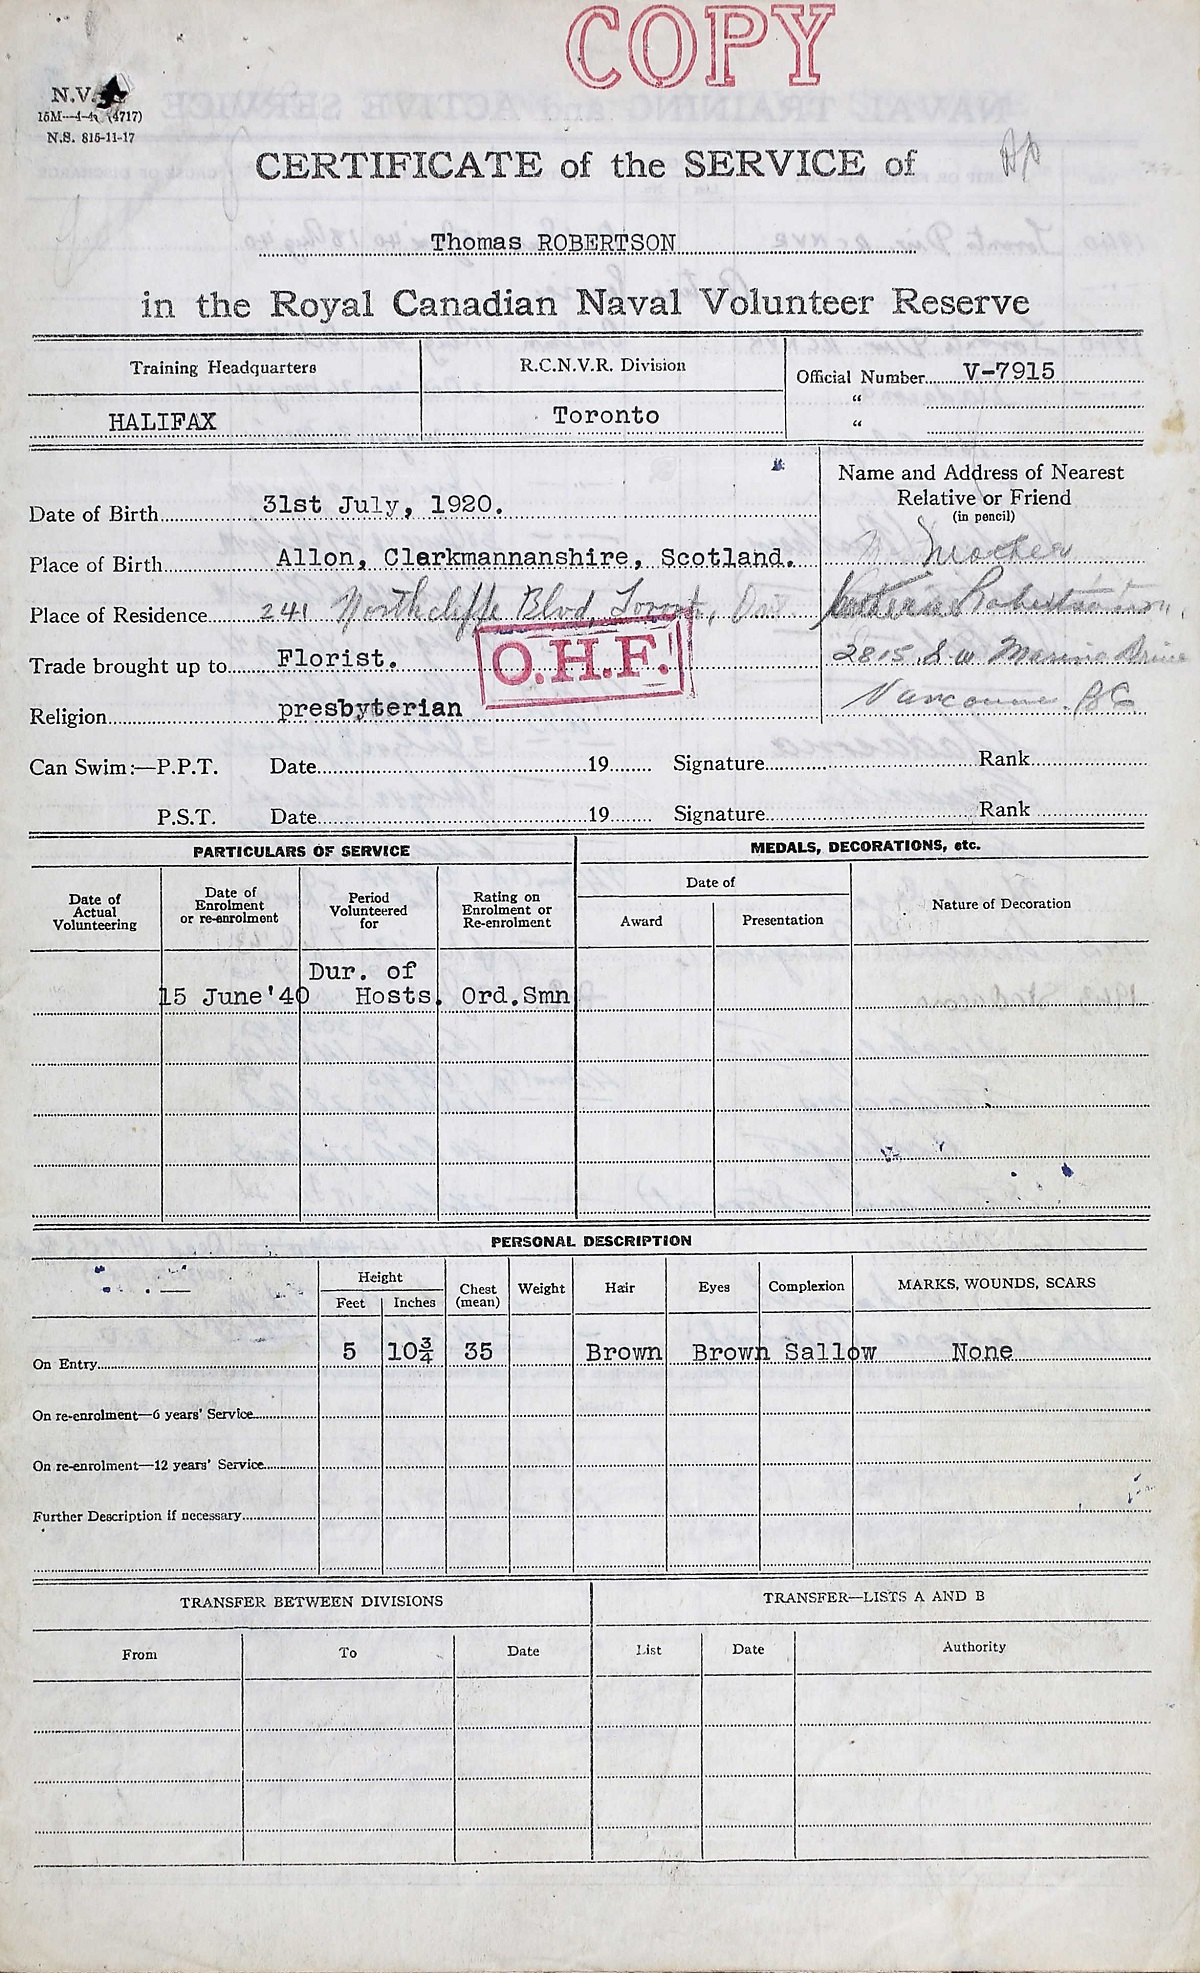 COPY
N.V.
15M—4-4 (4717)
N.S. 815-11-17
CERTIFICATE of the SERVICE of
Thomas ROBERTSON
in the Royal Canadian Naval Volunteer Reserve
Training Headquarters
R.C.N.V.R. Division
Official Number V-7915
HALIFAX
Toronto
"
"
Name and Address of Nearest
Relative or Friend
(in pencil)
Date of Birth 31st July, 1920.
Place of Birth Allon, Clarkmannanshire, Scotland.
Mother
Place of Residence 241 Northcliffe Blvd, Toront, Ont
Robertson
Trade brought up to Florist.
O.H.F.
2815 S W Marine Drive
Religion presbyterian
Vancouver BC
Can Swim:—P.P.T. Date 19 Signature Rank
P.S.T. Date 19 Signature Rank
PARTICULARS OF SERVICE
MEDALS, DECORATIONS, etc.
Date of
Actual
Volunteering
Date of
Enrolment
or re-enrolment
Period
Volunteered
for
Rating on
Enrolment or
Re-enrolment
Date of
Award
Presentation
Nature of Decoration
15 June'40
Dur. of
Hosts.
Ord.Smn
PERSONAL DESCRIPTION
Height
Feet
Inches
Chest
(mean)
Weight
Hair
Eyes
Complexion
MARKS, WOUNDS, SCARS
On Entry 5 10¾ 35 Brown Brown Sallow None
On re-enrolment—6 years' Service
On re-enrolment—12 years' Service
Further Description if necessary
TRANSFER BETWEEN DIVISIONS
TRANSFER—LISTS A AND B
From
To
Date
List
Date
Authority